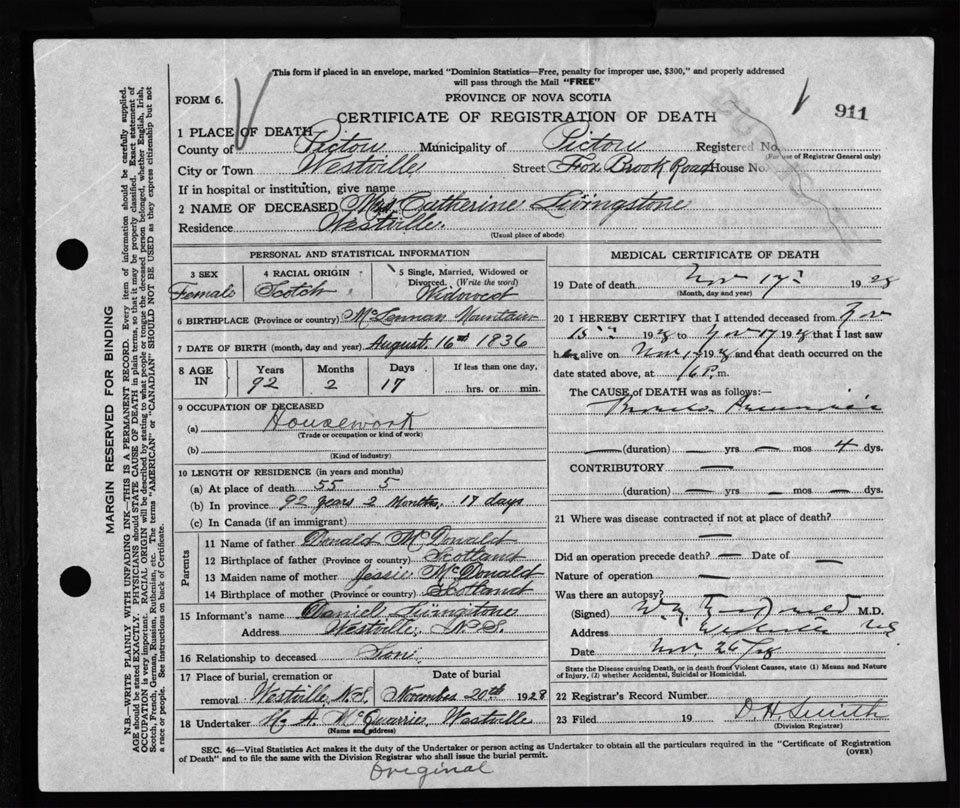 This form if placed in an envelope, marked "Dominion Statistics—Free, penalty for improper use, $300," and properly addressed
will pass through the Mail "FREE"
FORM 6.
PROVINCE OF NOVA SCOTIA
911
CERTIFICATE OF REGISTRATION OF DEATH
1 PLACE OF DEATH
County of Pictou Municipality of Pictou Registered No.
(For use of Registrar General only)
City or Town Westville Street Fox Brook Road House No.
If in hospital or institution, give name
2 NAME OF DECEASED Mrs. Catherine Livingstone
Residence Westville.
(Usual place of abode)
PERSONAL AND STATISTICAL INFORMATION
3 SEX 4 RACIAL ORIGIN 5 Single, Married, Widowed or
Divorced. (Write the word)
Female Scotch Widowed
6 BIRTHPLACE (Province or country) McLennan Mountain
7 DATE OF BIRTH (month, day and year) August. 16th 1836
8 AGE IN Years Months Days If less than one day,
92 2 17 hrs. or min.
9 OCCUPATION OF DECEASED
(a) Housework
(Trade or occupation or kind of work)
(b)
(Kind of industry)
10 LENGTH OF RESIDENCE (in years and months)
(a) At place of death 55 5
(b) In province 92 years 2 Months, 17 days
(c) In Canada (if an immigrant)
Parents
11 Name of father Donald McDonald
12 Birthplace of father (Province or country) Scotland
13 Maiden name of mother Jessie McDonald
14 Birthplace of mother (Province or country) Scotland
15 Informant's name Daniel Livingstone
Address Westville, N.S.
16 Relationship to deceased Son.
17 Place of burial, cremation or Date of burial
removal Westville N.S. November 20th 1928
18 Undertaker A. McQuarrie Westville
(Name and address)
MEDICAL CERTIFICATE OF DEATH
19 Date of death Nov 17 1928
(Month, day and year)
20 I HEREBY CERTIFY that I attended deceased from Nov
15 1928 to Nov 17 1928 that I last saw
her alive on Nov 1928 and that death occurred on the
date stated above, at P.m.
The CAUSE OF DEATH was as follows:
(duration) — yrs — mos 4 dys.
CONTRIBUTORY —
(duration) — yrs — mos — dys.
21 Where was disease contracted if not at place of death?
—
Did an operation precede death? — Date of —
Nature of operation —
Was there an autopsy?
(Signed) M.D.
Address Westville NS
Date Nov. 26/28
State the Disease causing Death, or in death from Violent Causes, state (1) Means and Nature
of Injury, (2) whether Accidental, Suicidal or Homicidal.
22 Registrar's Record Number
23 Filed 19 D. H. Smith
(Division Registrar)
SEC. 46—Vital Statistics Act makes it the duty of the Undertaker or person acting as Undertaker to obtain all the particulars required in the "Certificate of Registration
of Death" and to file the same with the Division Registrar who shall issue the burial permit.
(OVER)
Original
MARGIN RESERVED FOR BINDING
N.B.—WRITE PLAINLY WITH UNFADING INK—THIS IS A PERMANENT RECORD. Every item of information should be carefully supplied.
AGE should be stated EXACTLY. PHYSICIANS should STATE CAUSE OF DEATH in plain terms, so that it may be properly classified. Exact statement of
OCCUPATION is very important. RACIAL ORIGIN will be described by stating to what people or tongue the deceased person belonged, whether English, Irish,
Scotch, French, German, Russian, Ruthenian, etc. The terms "AMERICAN" or "CANADIAN" SHOULD NOT BE USED as they express citizenship but not
a race or people. See instructions on back of Certificate.